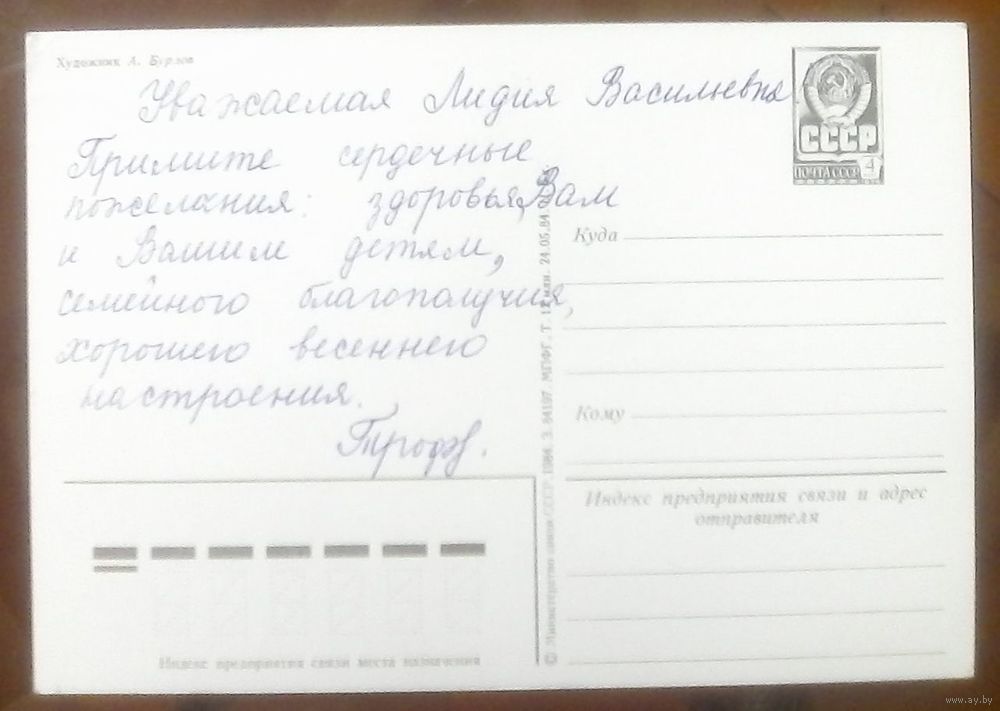 Художник А. Бурлов
Уважаемая Лидия Васильевна
Примите сердечные
пожелания: здоровья Вам
и Вашим детям,
семейного благополучия,
хорошего весеннего
настроения.
СССР
ПОЧТА СССР 4
Куда
Кому
Индекс предприятия связи и адрес
отправителя
Индекс предприятия связи места назначения
© Министерство связи СССР. 1984. З. 84197. МПФГ. Т. 12 млн. 24.05.84.
www.ay.by